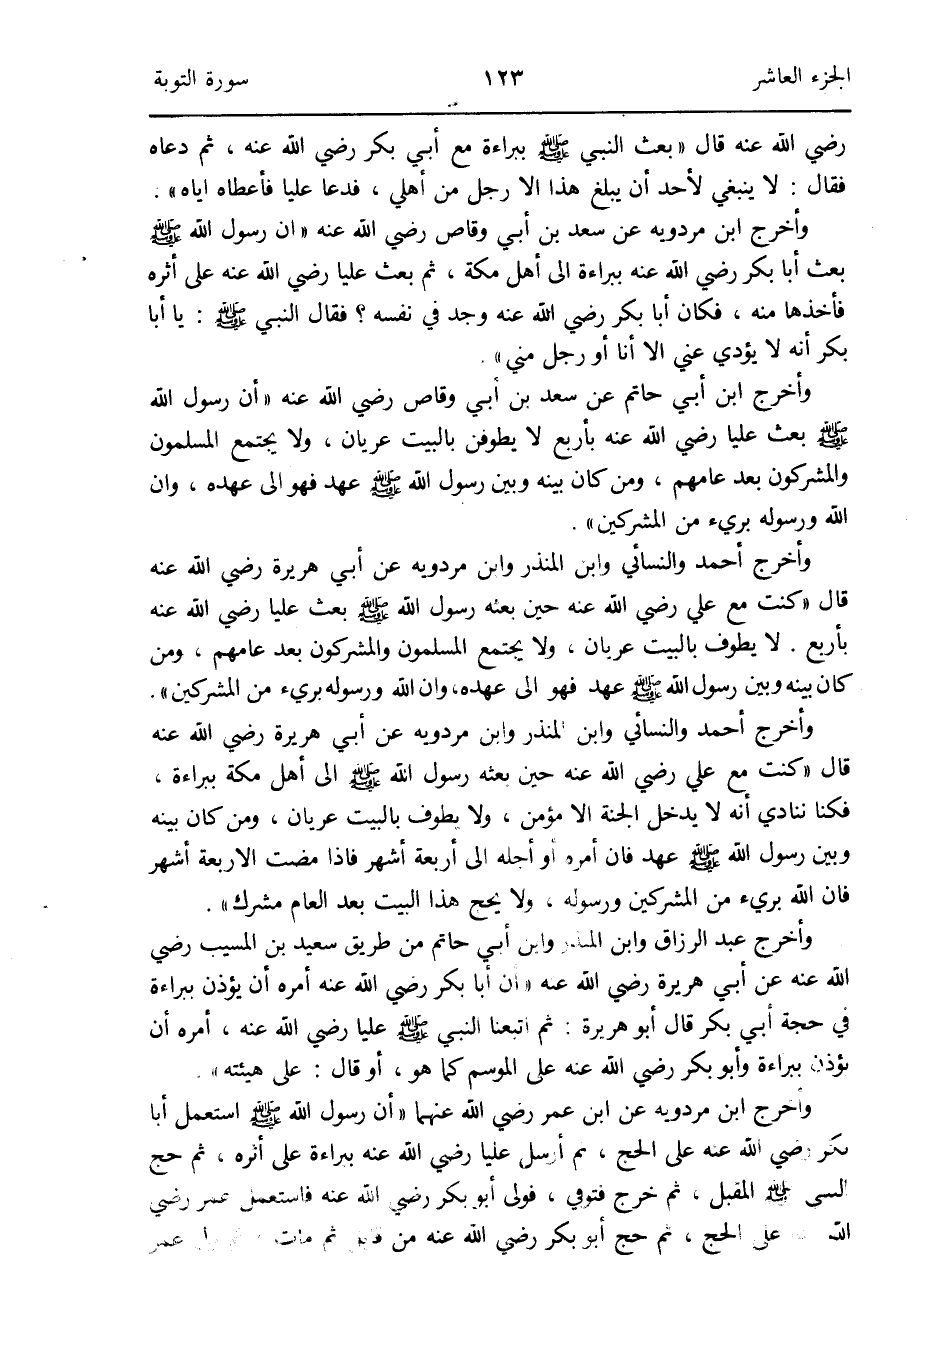 الجزء العاشر ١٢٣ سورة التوبة
رضي الله عنه قال «بعث النبي ﷺ ببراءة مع أبي بكر رضي الله عنه ، ثم دعاه
فقال : لا ينبغي لأحد أن يبلغ هذا الا رجل من أهلي ، فدعا عليا فأعطاه اياه» .
وأخرج ابن مردويه عن سعد بن أبي وقاص رضي الله عنه «ان رسول الله ﷺ
بعث أبا بكر رضي الله عنه ببراءة الى أهل مكة ، ثم بعث عليا رضي الله عنه على أثره
فأخذها منه ، فكان أبا بكر رضي الله عنه وجد في نفسه ؟ فقال النبي ﷺ : يا أبا
بكر أنه لا يؤدي عني الا أنا أو رجل مني» .
وأخرج ابن أبي حاتم عن سعد بن أبي وقاص رضي الله عنه «أن رسول الله
ﷺ بعث عليا رضي الله عنه بأربع لا يطوفن بالبيت عريان ، ولا يجتمع المسلمون
والمشركون بعد عامهم ، ومن كان بينه وبين رسول الله ﷺ عهد فهو الى عهده ، وان
الله ورسوله بريء من المشركين» .
وأخرج أحمد والنسائي وابن المنذر وابن مردويه عن أبي هريرة رضي الله عنه
قال «كنت مع علي رضي الله عنه حين بعثه رسول الله ﷺ بعث عليا رضي الله عنه
بأربع . لا يطوف بالبيت عريان ، ولا يجتمع المسلمون والمشركون بعد عامهم ، ومن
كان بينه وبين رسول الله ﷺ عهد فهو الى عهده، وان الله ورسوله بريء من المشركين» .
وأخرج أحمد والنسائي وابن المنذر وابن مردويه عن أبي هريرة رضي الله عنه
قال «كنت مع علي رضي الله عنه حين بعثه رسول الله ﷺ الى أهل مكة ببراءة ،
فكنا ننادي أنه لا يدخل الجنة الا مؤمن ، ولا يطوف بالبيت عريان ، ومن كان بينه
وبين رسول الله ﷺ عهد فان أمره أو أجله الى أربعة أشهر فاذا مضت الاربعة أشهر
فان الله بريء من المشركين ورسوله ، ولا يحج هذا البيت بعد العام مشرك» .
وأخرج عبد الرزاق وابن المنذر وابن أبي حاتم من طريق سعيد بن المسيب رضي
الله عنه عن أبي هريرة رضي الله عنه «أن أبا بكر رضي الله عنه أمره أن يؤذن ببراءة
في حجة أبي بكر قال أبو هريرة : ثم اتبعنا النبي ﷺ عليا رضي الله عنه ، أمره أن
يؤذن ببراءة وأبو بكر رضي الله عنه على الموسم كما هو ، أو قال : على هيئته» .
وأخرج ابن مردويه عن ابن عمر رضي الله عنهما «أن رسول الله ﷺ استعمل أبا
بكر رضي الله عنه على الحج ، ثم أرسل عليا رضي الله عنه ببراءة على أثره ، ثم حج
النبي ﷺ المقبل ، ثم خرج فتوفي ، فولى أبو بكر رضي الله عنه فاستعمل عمر رضي
الله على الحج ، ثم حج أبو بكر رضي الله عنه من قابل ثم مات عمر